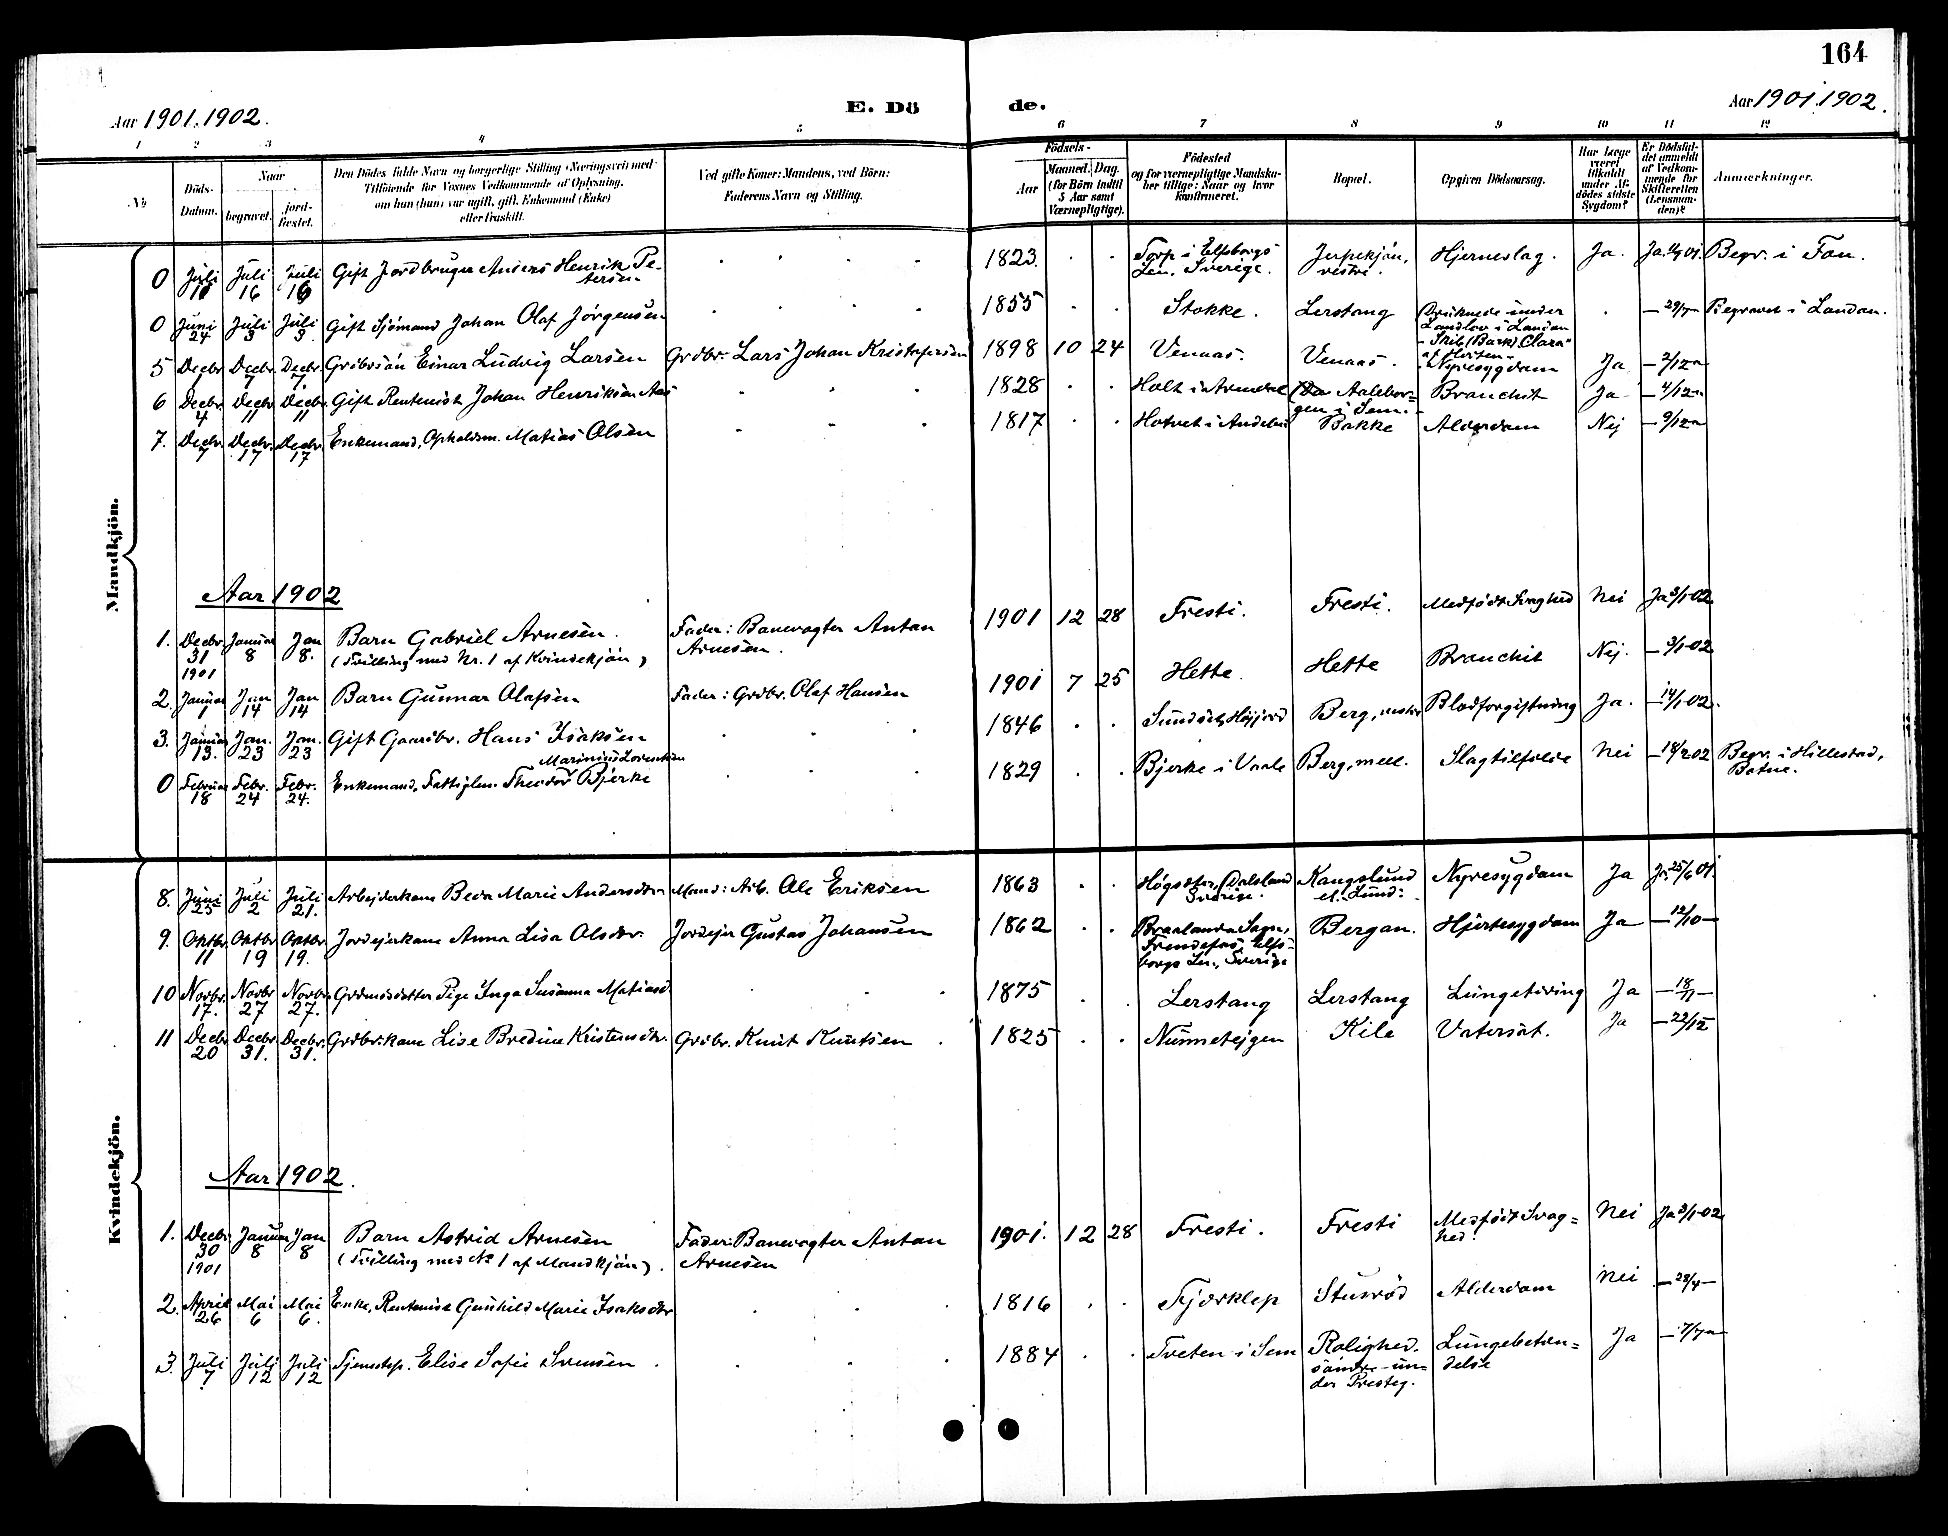 164
Aar 1901. 1902.
E. Dö
de.
Aar 1901. 1902.
1 2 3 4 5 6 7 8 9 10 11 12
No
Döds-
Datum.
Naar
begravet.
jord-
fæstet.
Den Dødes fulde Navn og borgerlige Stilling (Næringsvei) med
Tilföiende for Voxnes Vedkommende af Oplysning,
om han (hun) var ugift, gift, Enkemand (Enke)
eller fraskilt.
Ved gifte Koner: Mandens, ved Börn:
Faderens Navn og Stilling.
Födsels-
Aar
Maaned. Dag.
(for Börn indtil
5 Aar samt
Værnepligtige).
Födested
og for værnepligtige Mandska-
ber tillige: Naar og hvor
konfirmeret.
Bopæl.
Opgiven Dödsaarsag.
Har Læge
været
tilkaldt
under Af-
dödes sidste
Sygdom?
Er Dödsfal-
det anmeldt
af Vedkom-
mende for
Skifteretten
(Lensman-
den)?
Anmærkninger.
Mandkjön.
0 Juli 10 Juli 16 Juli 16 Gift Jordbruger Anders Henrik Pe-
tersen 1823. Torp i Elfsborgs
Len, Sverige. Jerpekjøn,
vestre. Hjerneslag. Ja. Begr. i Fon.
0 Juni 24 Juli 3 Juli 3 Gift Sjömand Johan Olaf Jörgensen 1855 Stokke. Lerstang Druknede under
Landlov i London
- Skib (Bark) "Clara"
af Horten - — 29/7 — Begravet i London.
5 Decbr. 1 Decbr. 7 Decbr. 7. Grdbrsön Einar Ludvig Larsen Grdbr. Lars Johan Kristofersen 1898 10 24 Venaas. Venaas. Nyresygdom Ja — 2/12 —
6 Decbr. 4 Decbr. 11 Decbr. 11 Gift Rentenist Johan Henriksen Aas 1828 Holt i Arendal Aalebor-
gen i Sem. Bronchit Ja — 4/12 —
7. Decbr. 7 Decbr. 17 Decbr. 17 Enkemand, Opholdsm. Matias Olsen 1817 Hotvet i Andebu Bakke Alderdom Nej — 9/12 —
Aar 1902
1. Decbr. 31 1901 Januar 8 Jan 8. Barn Gabriel Arnesen.
(Tvilling med Nr. 1 af Kvindekjön) Fader: Banevogter Anton
Arnesen. 1901 12 28 Fresti. Fresti. Medfödt Svaghed Nei Ja 3/1 02
2. Januar 1 Jan 14 Jan 14 Barn Gunnar Olafsen Fader: Grdbr. Olaf Hansen 1901 7 25 Hette. Hette Bronchit Nej. — 3/1 02
3. Januar 13. Jan. 23 Jan. 23 Gift Gaardbr. Hans Isaksen 1846 Sundset, Höyjord Berg, vestre Blodforgiftning Ja. — 14/1 02.
0 Februar 18 Febr. 24 Febr. 24. Enkemand, Fattiglem Theodor Marinius Lorentsen Bjerke 1829 Bjerke i Vaale Berg, mell. Slagtilfælde Nei — 18/2 02 Begr. i Hillestad,
Botne.
Kvindekjön.
8. Juni 25 Juli 2 Juli 21. Arbejderkone Beda Marie Andersdtr. Mand: Arb. Ole Eriksen 1863 Högsäter, Dalsland
Sverige. Kongslund
el. Lund: Nyresygdom Ja Ja 25/6 01.
9. Oktbr. 11 Oktbr 19 Oktbr 19. Jordejerkone Anna Lisa Olsdtr. Jordejer Gustav Johansen 1862 Braalanda Sogn,
Frendefors, Elfs-
borgs Len, Sverige Bergan. Hjertesygdom Ja — 12/10 —
10 Novbr. 17. Novbr 27 Novbr. 27. Grdmdsdatter Pige Inga Susanna Matiasd. 1875 Lerstang Lerstang Lungetæring Ja — 18/11 —
11 Decbr 20 Decbr. 31. Decbr. 31. Grdbr.kone Lise Bredine Kristensdtr. Grdbr. Knut Knutsen 1825 Nunnetejgen Kile Vatersot. Ja — 22/12
Aar 1902.
1. Decbr 30 1901 Januar 8 Jan 8 Barn Astrid Arnesen
(Tvilling med No 1 af Mandkjön). Fader: Banevogter Anton
Arnesen 1901. 12 28 Fresti. Fresti Medfödt Svag=
hed. Nei Ja 3/1 02
2. April 26 Mai 6 Mai 6. Enke, Rentenist Gunhild Marie Isaksdtr 1816 Fjærklep Stusröd Alderdom Nei — 28/4 —
3. Juli 7 Juli 12 Juli 12 Tjenestep. Elise Sofie Svensen. 1884 Tveten i Sem Rolighed.
söndre - un-
der Presteg. Lungebetæn=
delse Ja — 7/7 —